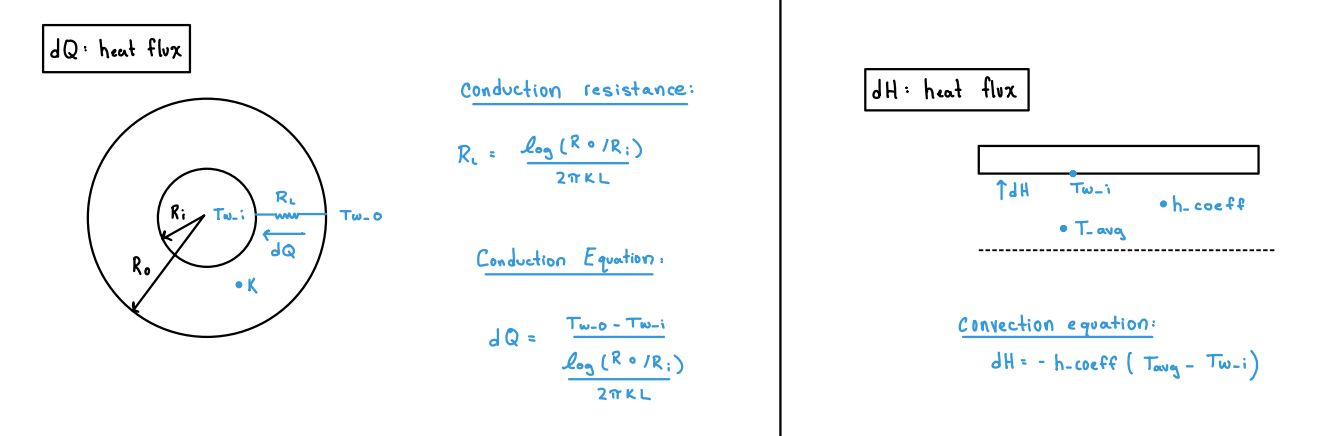 dQ: heat flux
Ri
Tw_i
RL
Tw_o
dQ
Ro
K
Conduction resistance:
RL = log (Ro/Ri)
2πKL
Conduction Equation:
dQ = Tw_o - Tw_i
log (Ro/Ri)
2πKL
dH: heat flux
↑dH
Tw_i
h_coeff
T_avg
Convection equation:
dH = - h_coeff ( Tavg - Tw_i)